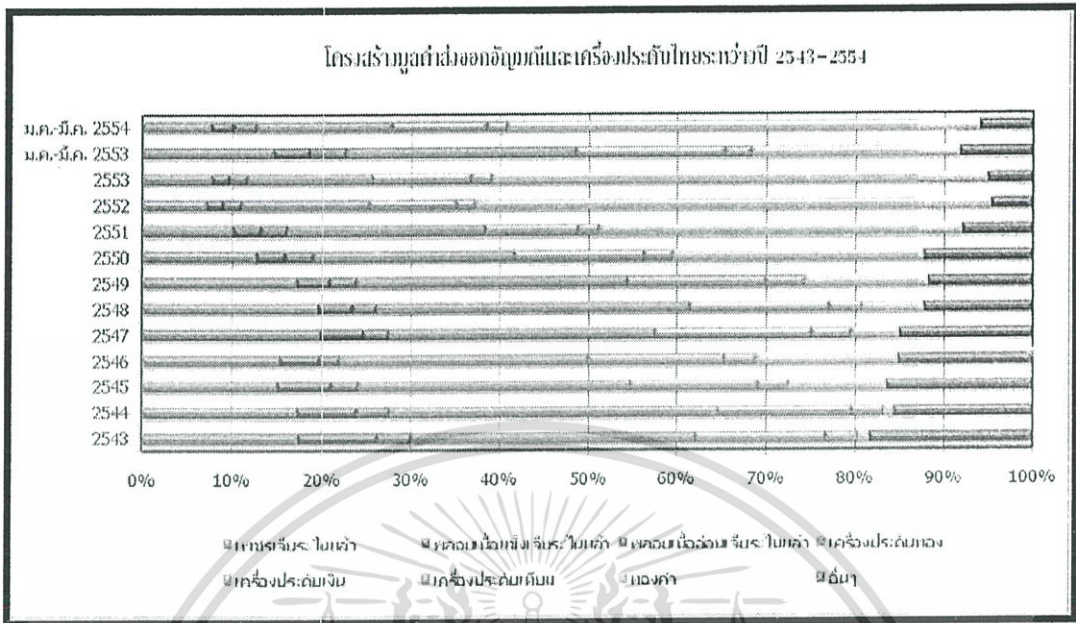 โครงสร้างมูลค่าส่งออกอัญมณีและเครื่องประดับไทยระหว่างปี 2543-2554
ม.ค.-มี.ค. 2554
ม.ค.-มี.ค. 2553
2553
2552
2551
2550
2549
2548
2547
2546
2545
2544
2543
0% 10% 20% 30% 40% 50% 60% 70% 80% 90% 100%
เพชรเจียระไนแล้ว พลอยเนื้อแข็งเจียระไนแล้ว พลอยเนื้ออ่อนเจียระไนแล้ว เครื่องประดับทอง
เครื่องประดับเงิน เครื่องประดับเทียม ทองคำ อื่นๆ